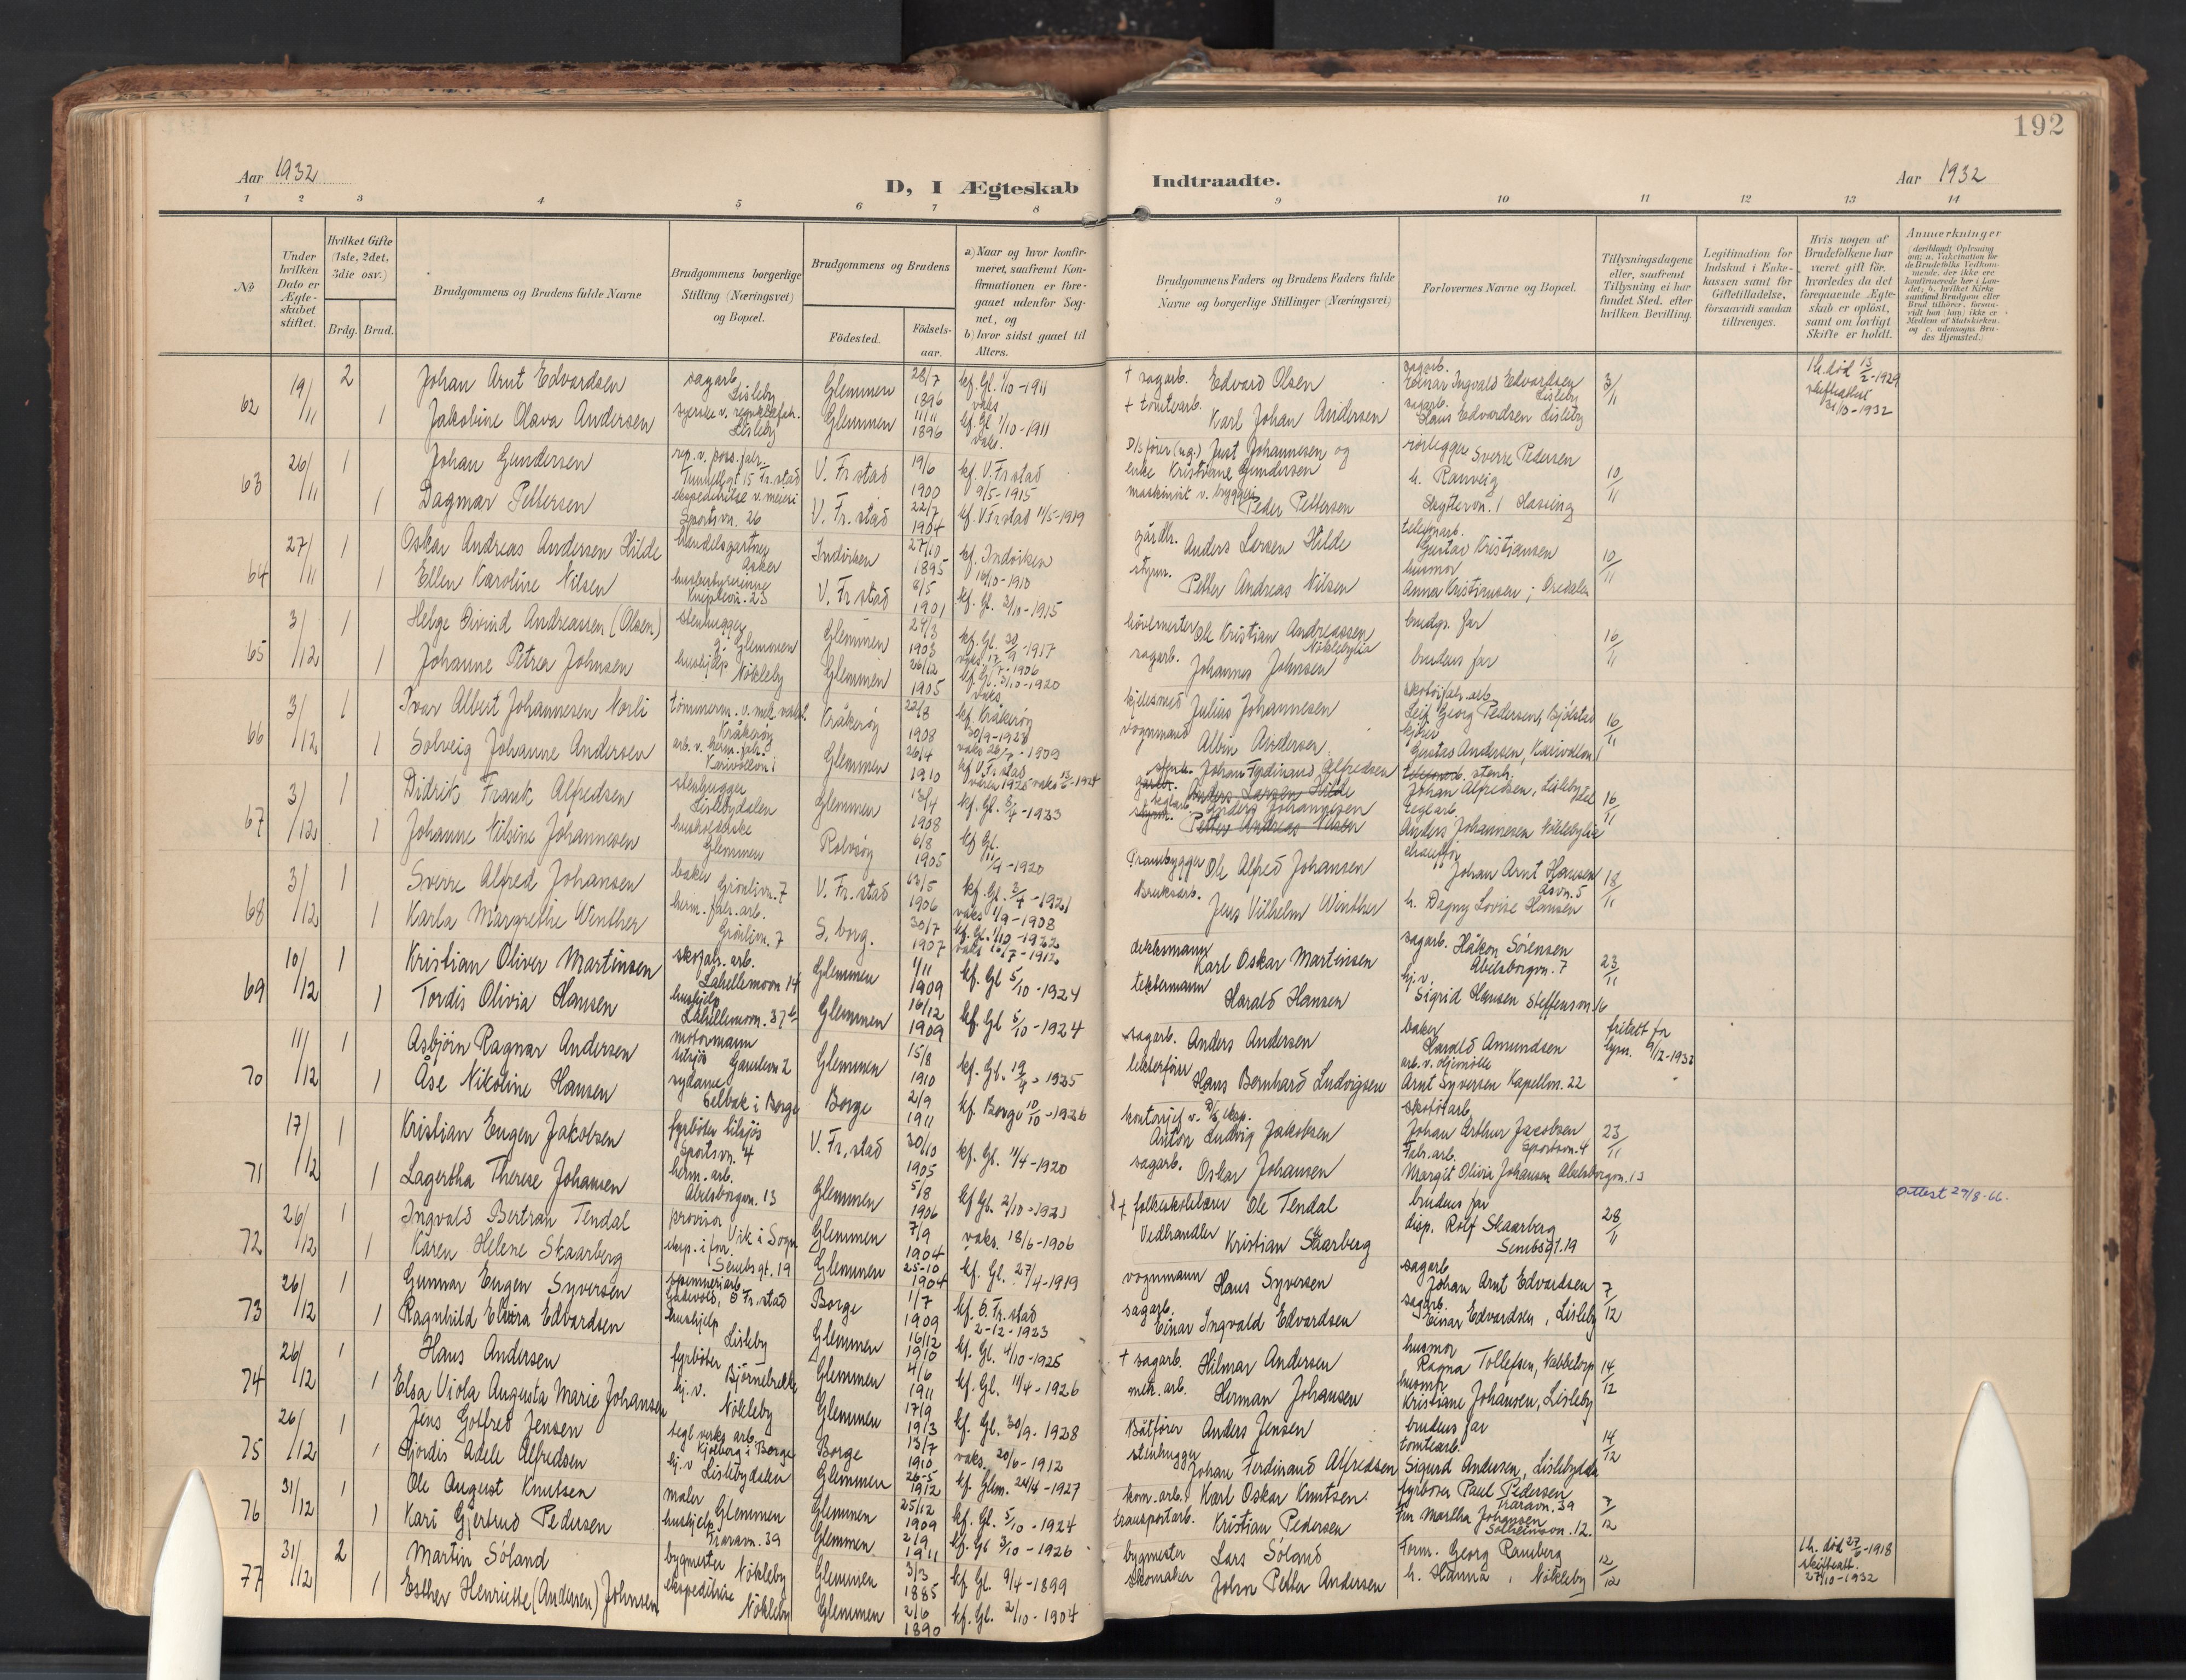 192
Aar 1932
D, I Ægteskab
Indtraadte.
Aar 1932
1 2 3 4 5 6 7 8
9 10 11 12 13 14
No
Under hvilken Dato er Ægteskabet stiftet.
Hvilket Gifte (1ste, 2det, 3die osv.)
Brdg. Brud.
Brudgommens og Brudens fulde Navne
Brudgommens borgerlige Stilling (Næringsvei) og Bopæl.
Brudgommens og Brudens
Fødested.
Fødselsaar.
a) Naar og hvor konfirmeret, saafremt Konfirmationen er foregaaet udenfor Sognet, og
b) hvor sidst gaaet til Alters.
Brudgommens Faders og Brudens Faders fulde Navne og borgerlige Stillinger (Næringsvei)
Forlovernes Navne og Bopæl.
Tillysningsdagene eller, saafremt Tillysning ei har fundet Sted, efter hvilken Bevilling.
Legitimation for Indskud i Enkekassen samt for Giftetilladelse, forsaavidt saadan tiltrænges.
Hvis nogen af Brudefolkene har været gift før, hvorledes da det foregaaende Ægteskab er opløst, samt om lovligt Skifte er holdt.
Anmerkninger
(deriblandt Oplysning om: a. Vaksination for de Brudefolks Vedkommende, der ikke ere konfirmerede her i Landet; b. hvilket Kirkesamfund Brudgom eller Brud tilhører, forsaavidt hun (han) ikke er Medlem af Statskirken, og c. udensogns Brudes Hjemsted.)
62 19/11 2 Johan Arnt Edvardsen sagarb. Lisleby Glemmen 28/7 1896 kf. Gl. 1/10-1911 vaks. + sagarb. Edvard Olsen sagarb. Einar Ingvald Edvardsen Lisleby 3/11 1 h. død 13/2-1929 skifteattest 31/3-1932
1 Jakobine Olava Andersen Lisleby Glemmen 11/11 1896 kf. Gl. 1/10-1911 vaks. + tomtearb. Karl Johan Andersen sagarb. Hans Edvardsen Lisleby
63 26/11 1 Johan Gundersen Tunellgt 15 Fr.stad V. Fr.stad 19/6 1900 kf. V. Fr.stad 9/5-1915 D/s fører (u.g.) Just Johannesen og enke Kristiane Gundersen rørlegger Sverre Pedersen 10/11
1 Dagmar Pettersen ekspeditrise v. meieri Sportsvn. 26 V. Fr.stad 22/7 1904 kf. V. Fr.stad 11/5-1919 maskinist v. bryggeri Peder Pettersen h. Ranveig Skyttervn. 1
64 27/11 1 Oskar Andreas Andersen Hilde handelsgartner Asker Indviken 27/10 1895 kf. Indviken 16/10-1910 gårdbr. Anders Larsen Hilde telefonarb. Gustav Kristiansen 10/11
1 Ellen Karoline Nilsen husbestyrerinne 23 V. Fr.stad 8/5 1901 kf. Gl. 3/10-1915 styrm. Petter Andreas Nilsen husmor Anna Kristiansen
65 3/12 1 Helge Øivind Andreassen (Olsen) stenhugger g. Glemmen Glemmen 29/3 1903 kf. Gl. 30/9-1917 høvlmester Ole Kristian Andreassen Nøklebylia brudg. far 16/11
1 Johanne Petrea Johnsen hushjelp Nøkleby Glemmen 26/12 1905 kf. Gl. 3/10-1920 vaks. sagarb. Johannes Johnsen brudens far
66 3/12 1 Ivar Albert Johannesen Norli tømmerm. v. mek. verksd. Kråkerøy Kråkerøy 22/8 1908 kf. Kråkerøy 30/9-1923 kjelesmed Julius Johannesen skotøifabr. arb. Leif Georg Pedersen, Bjølstad 16/11
1 Solveig Johanne Andersen arb. v. herm. fabr. Glemmen 26/4 1910 kf. V. Fr.stad våren 1925 vognmand Albin Andersen kjører Gustav Andersen
67 3/12 1 Didrik Frank Alfredsen stenhugger Lislebydalen Glemmen 13/7 1908 kf. Gl. 8/4-1923 stenh. Johan Ferdinand Alfredsen stenh. Johan Alfredsen, Lisleby 16/11
1 Johanne Nilsine Johannesen husholderske Glemmen Rolvsøy 6/8 1905 kf. Gl. 11/4-1920 teglarb. Anders Johannesen teglarb. Anders Johannesen Nøklebylia
68 3/12 1 Sverre Alfred Johansen baker Grønlivn. 7 V. Fr.stad 1906 kf. Gl. 3/4-1921 vaks. 1/9-1908 Prambygger Ole Alfred Johansen chauffør Johan Arnt Hansen Åsvn. 5 18/11
1 Karla Margrethe Winther herm. fabr. arb. Grønlivn. 7 S. borg. 30/7 1907 kf. Gl. 1/10-1922 vaks. Bruksarb. Jens Vilhelm Winther h. Dagny Lovise Hansen
69 10/12 1 Kristian Oliver Martinsen skofabr. arb. Lahellemoen 14 Glemmen 1/11 1909 kf. Gl. 5/10-1924 dekksmann Karl Oskar Martinsen sagarb. Håkon Sørensen Abelsborgvn. 7 23/11
1 Tordis Olivia Hansen hushjelp Glemmen 16/12 1909 kf. Gl. 5/10-1924 lektermann Harald Hansen hj.v. Sigrid Hansen Steffensvn. 16
70 11/12 1 Asbjørn Ragnar Andersen motormann tilsjøs Glemmen 15/8 1910 kf. Gl. 19/4-1925 sagarb. Anders Andersen baker Harald Amundsen fritatt for lysn. 9/12-1932
1 Åse Nikoline Hansen sydame Selbak i Borge Borge 2/9 1911 kf. Borge 10/10-1926 lekterfører Hans Bernhard Ludvigsen arb. v. oljemølle Arnt Syversen Kapellvn. 22
71 17/12 1 Kristian Eugen Jakobsen fyrbøter tilsjøs Sportsvn. 4 V. Fr.stad 30/10 1905 kf. Gl. 11/4-1920 kontorsjef v. D/S eksp. Anton Ludvig Jakobsen skotøiarb. Johan Arthur Jacobsen Sportsvn. 4 23/11
1 Lagertha Therese Johansen herm. arb. Abelsborgvn. 13 Glemmen 5/8 1906 kf. Gl. 2/10-1921 sagarb. Oskar Johansen Fabr. arb. Margit Olivia Johansen Abelsborgvn. 13
72 26/12 1 Ingvald Bertran Tendal provisor Vik i Sogn Glemmen 7/9 1904 vaks. 18/6-1906 + folkeskolelærer Ole Tendal brudens far 28/11 Attest 29/8-66.
1 Karen Helene Skaarberg Sembsgt. 19 Glemmen 25-10 1904 kf. Gl. 27/4-1919 Vedhandler Kristian Skaarberg disp. Rolf Skaarberg Sembsgt. 19
73 26/12 1 Gunnar Eugen Syversen spinneriarb. Gudevold, Ø Fr.stad Borge 1/7 1909 kf. Ø. Fr.stad 2-12-1923 vognmann Hans Syversen sagarb. Johan Arnt Edvardsen 7/12
1 Ragnhild Elvira Edvardsen hushjelp Lisleby Glemmen 16/12 1910 kf. Gl. 4/10-1925 sagarb. Einar Ingvald Edvardsen sagarb. Einar Edvardsen, Lisleby
74 26/12 1 Hans Andersen fyrbøter Bjørnebrekke Glemmen 4/6 1911 kf. Gl. 11/4-1926 + sagarb. Hilmar Andersen husmor Ragna Tollefsen, Nabbetorp 14/12
1 Elsa Viola Augusta Marie Johansen hj.v. Nøkleby Glemmen 17/9 1913 kf. Gl. 30/9-1928 mek. arb. Herman Johansen husmor Kristiane Johansen, Lisleby
75 26/12 1 Jens Gotfred Jensen teglverks arb. Kjølberg i Borge Borge 13/7 1910 vaks. 20/6-1912 Båtfører Anders Jensen brudens far 14/12
1 Hjørdis Adele Alfredsen hj.v. Lislebydalen Glemmen 26-5 1912 kf. Glem. 24/4-1927 stenhugger Johan Ferdinand Alfredsen tomtearb. Sigurd Andersen, Lislebydalen
76 31/12 1 Ole August Knutsen maler Glemmen Glemmen 25/12 1909 kf. Gl. 5/10-1924 kom. arb. Karl Oskar Knutsen fyrbøter Paul Pedersen Traravn. 39 7/12
1 Kari Gjertrud Pedersen hushjelp Traravn. 39 Glemmen 2/9 1911 kf. Gl. 3/10-1926 transportarb. Kristian Pedersen Fru Martha Johansen Solheimsvn. 12.
77 31/12 2 Martin Søland bygmester Nøkleby Glemmen 3/3 1885 kf. Gl. 9/4-1899 bygmester Lars Søland Form. Georg Ramberg 12/12 1 h. død 27/6-1918 skifteatt. 27/10-1932
1 Esther Henriette (Andersen) Johnsen ekspeditrise Nøkleby Glemmen 2/6 1890 kf. Gl. 2/10-1904 Skomaker Johan Petter Andersen h. Hanna, Nøkleby